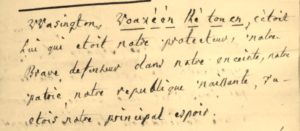 Wasington, Voaxéen Ré touen, c'étoit
lui qui etoit notre protecteur, notre
Brave defenseur dans notre enceinte, notre
patrie, notre republique naissante, tu
etois notre principal espoir.